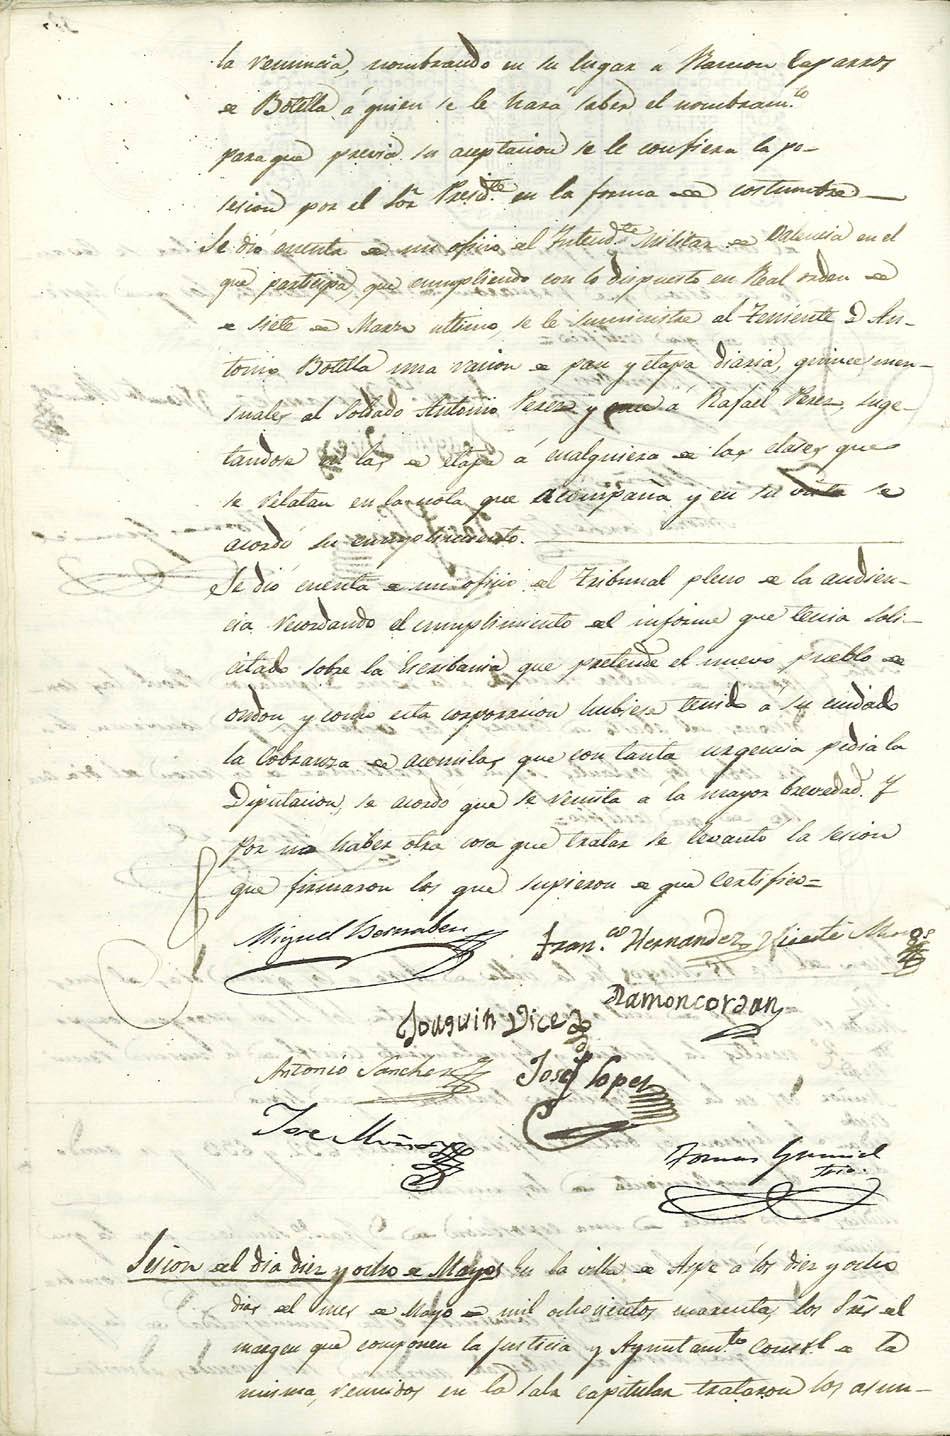 la renuncia, nombrando en su lugar á Ramon Caparros
de Botella á quien se le hará saber el nombram.to
para que previa su aceptacion se le confiera la po-
sesion por el Sor Presid.te en la forma de costumbre
Se dió cuenta de un oficio del Intend.te Militar de Valencia en el
que participa, que cumpliendo con lo dispuesto en Real orden de
de siete de Marzo ultimo, se le suministre al Teniente D An-
tonio Botella una racion de pan y etapa diaria, quince men-
suales al Soldado Antonio Perez y á Rafael Perez, suge-
tandose en las de etapa á cualquiera de las clases que
se relatan en la nota que acompaña y en su vista se
acordó su cumplimiento.
Se dió cuenta de un oficio del Tribunal pleno de la audien-
cia recordando el cumplimiento del informe que tenia soli-
citado sobre la Escribania que pretende el nuevo pueblo de
ondon, y como esta corporacion hubiese tenido á su cuidado
la Cobranza de acemilas que con tanta urgencia pedia la
Diputacion, se acordó que se remita á la mayor brevedad. Y
por no haber otra cosa que tratar se levantó la sesion
que firmaron los que supieron de que Certifico=
Miguel Bernabeu
Fran.co Hernandez Vicente
Joaquin Vicedo
Ramon cordan
Antonio Sanchez
Josef Lopez
Jose Muñoz
Tomas Gumiel
Srio.
Sesion del dia diez y ocho de Mayo En la villa de Aspe á los diez y ocho
dias del mes de Mayo de mil ochocientos cuarenta, los Sres del
margen que componen la Justicia y Ayuntam.to Const.l de la
misma, reunidos en la Sala capitular trataron los asun-